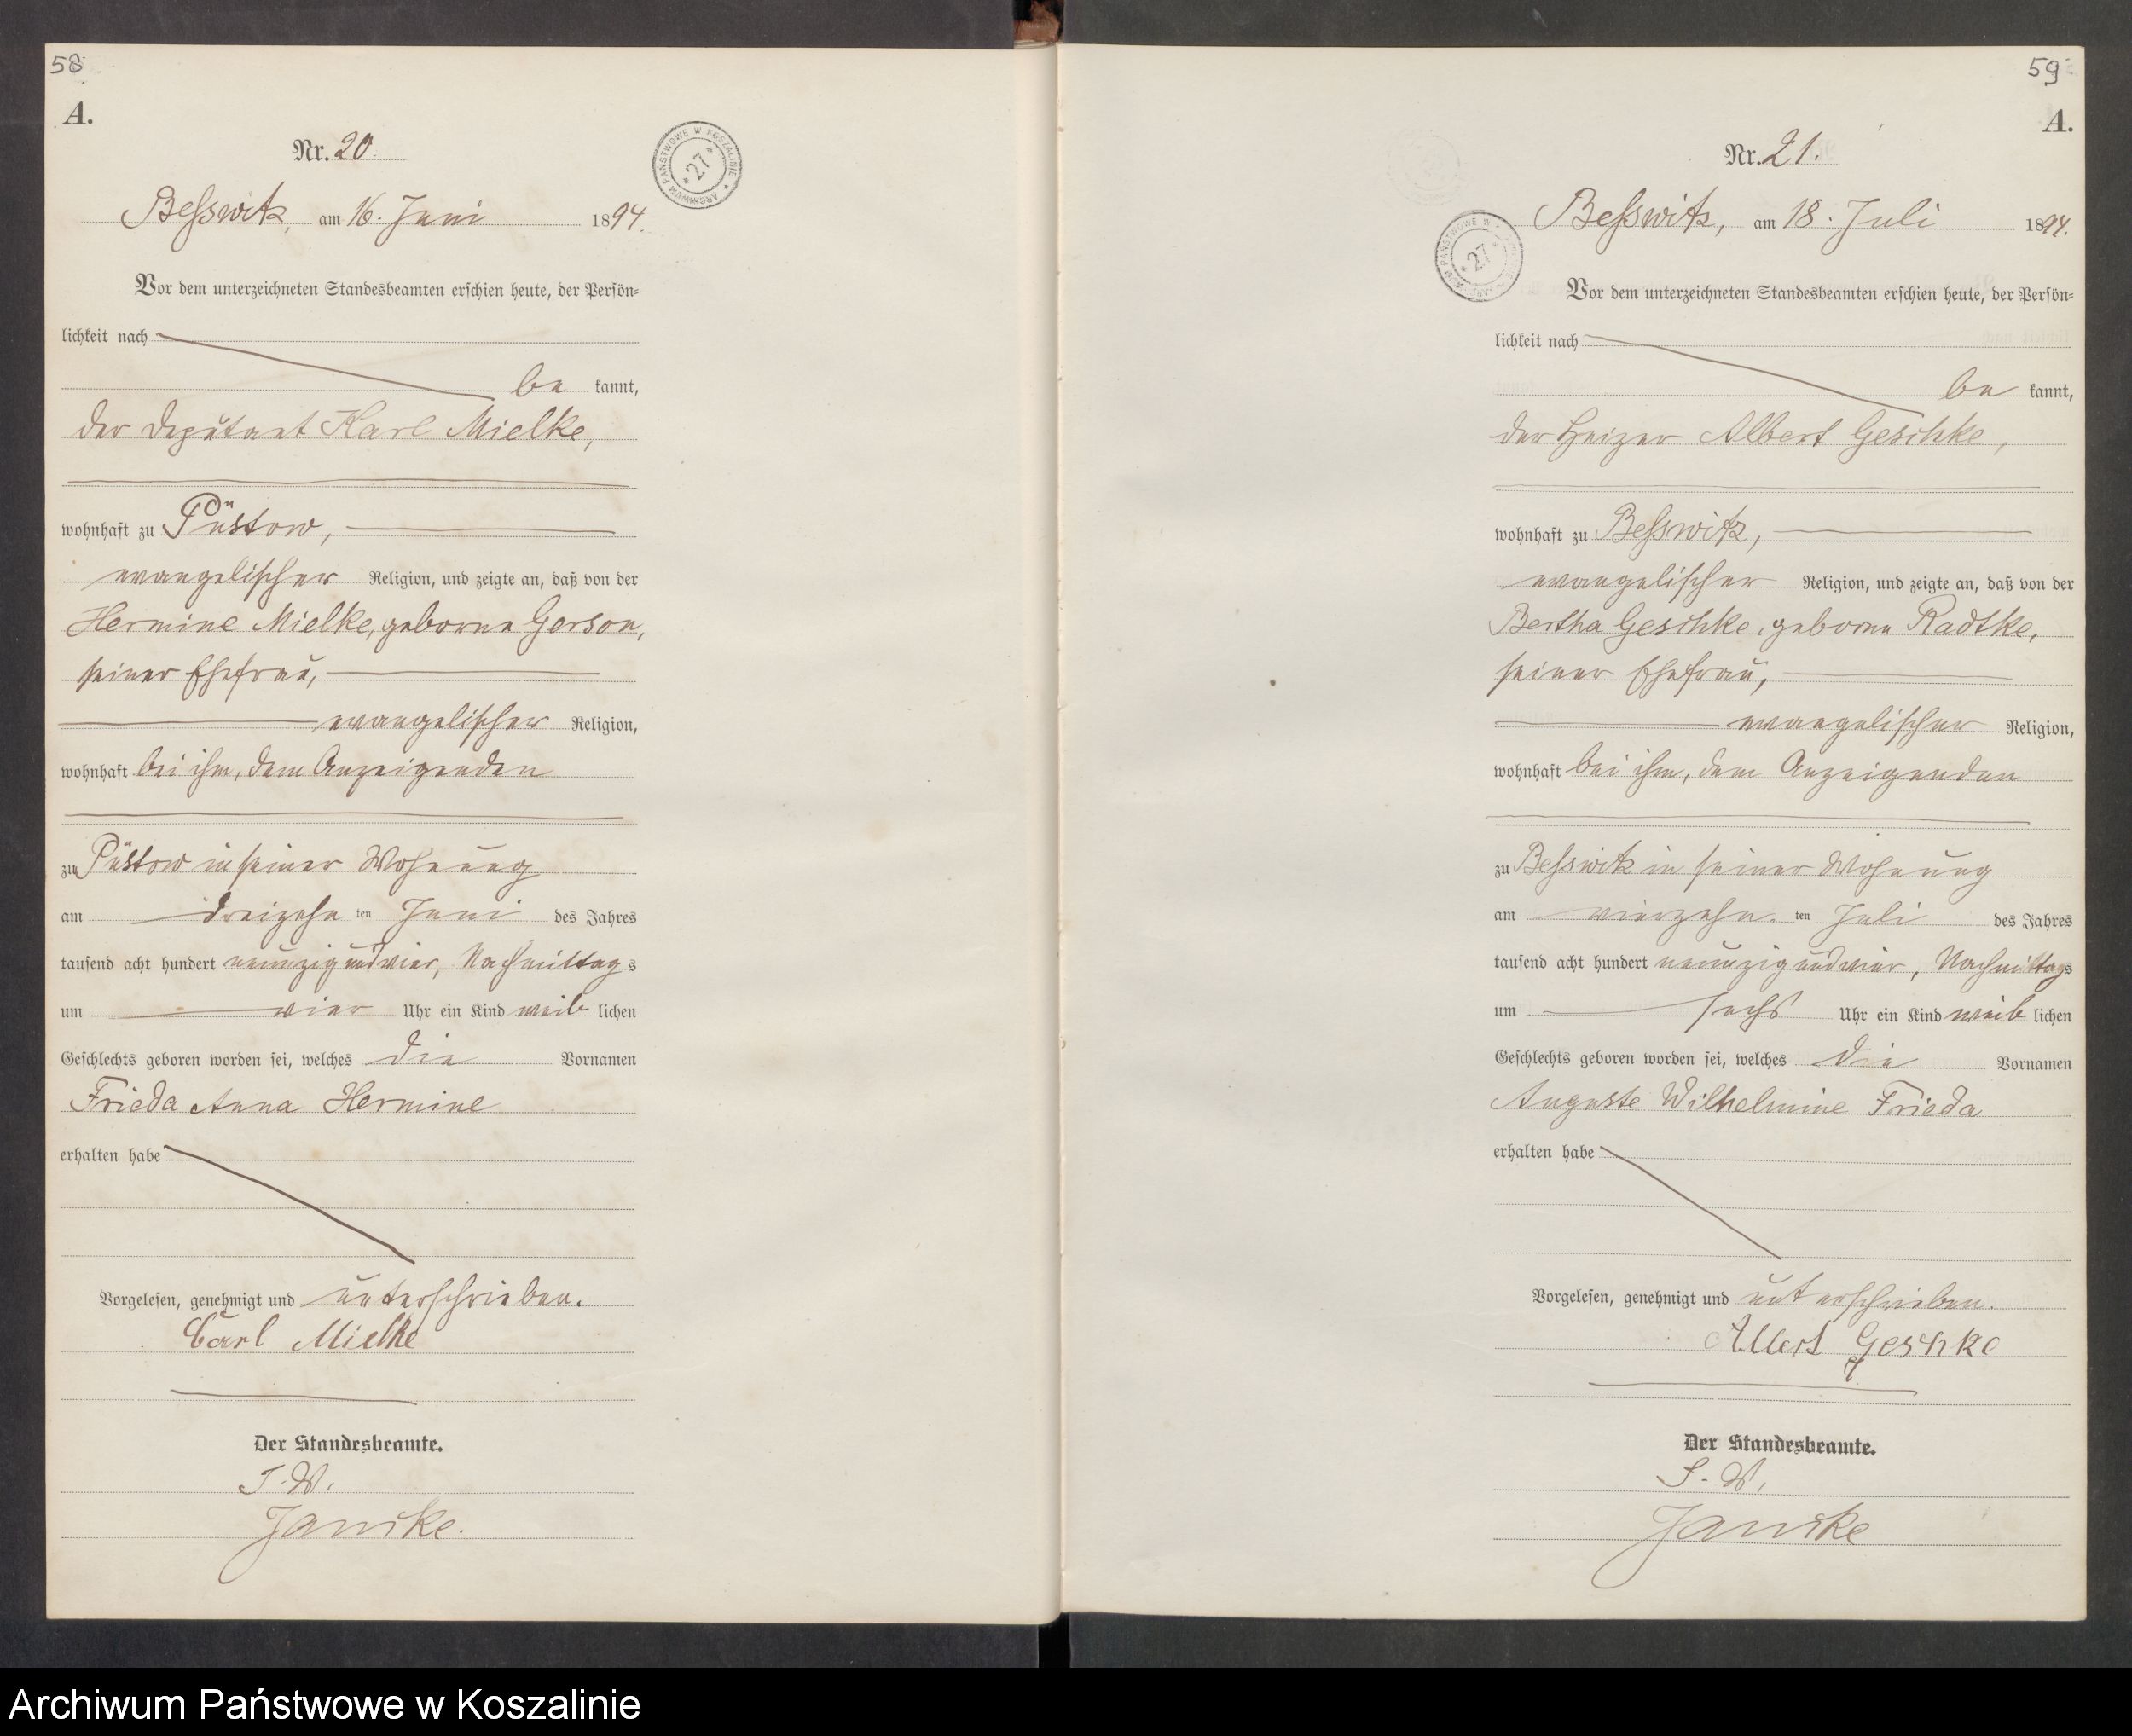 58
A.
Nr. 20.
ARCHIWUM PAŃSTWOWE W KOSZALINIE * 27 *
Beßwitz, am 16. Juni 1894.
Vor dem unterzeichneten Standesbeamten erschien heute, der Persön-
lichkeit nach
be kannt,
der Deputant Karl Mielke,
wohnhaft zu Püstow,
evangelischer Religion, und zeigte an, daß von der
Hermine Mielke, geborne Gerson,
seiner Ehefrau,
evangelischer Religion,
wohnhaft bei ihm, dem Anzeigenden
zu Püstow in seiner Wohnung
am dreizehn ten Juni des Jahres
tausend acht hundert neunzig und vier, Nachmittags
um vier Uhr ein Kind weib lichen
Geschlechts geboren worden sei, welches die Vornamen
Frieda Anna Hermine
erhalten habe
Vorgelesen, genehmigt und unterschrieben.
Carl Mielke
Der Standesbeamte.
J. W.
59
A.
Nr. 21.
27
Beßwitz, am 18. Juli 1894.
Vor dem unterzeichneten Standesbeamten erschien heute, der Persön-
lichkeit nach
be kannt,
der Heizer Albert Geschke,
wohnhaft zu Beßwitz,
evangelischer Religion, und zeigte an, daß von der
Bertha Geschke, geborne Radtke,
seiner Ehefrau,
evangelischer Religion,
wohnhaft bei ihm, dem Anzeigenden
zu Beßwitz in seiner Wohnung
am vierzehn ten Juli des Jahres
tausend acht hundert neunzig und vier, Nachmittags
um sechs Uhr ein Kind weib lichen
Geschlechts geboren worden sei, welches die Vornamen
Auguste Wilhelmine Frieda
erhalten habe
Vorgelesen, genehmigt und unterschrieben.
Albert Geschke
Der Standesbeamte.
Archiwum Państwowe w Koszalinie